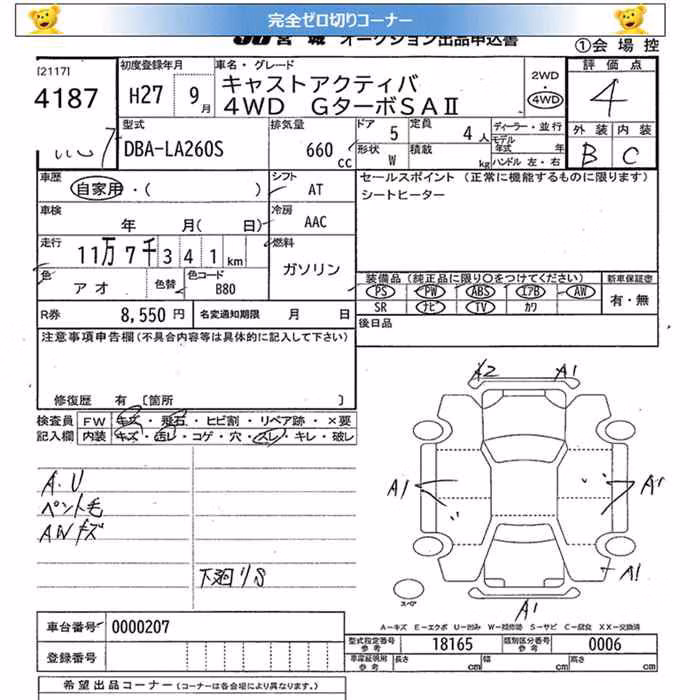 完全ゼロ切りコーナー
JU宮城 オークション出品申込書
①会場控
[2117]
4187
初度登録年月
H27 9月
車名・グレード
キャストアクティバ
4WD GターボSAⅡ
2WD
4WD
評価点
4
外装 内装
B C
型式
DBA-LA260S
排気量
660 cc
ドア 5
定員 4人
形状 W
積載 kg
ディーラー・並行
モデル年式 年
ハンドル 左・右
車歴
自家用・( )
シフト AT
セールスポイント (正常に機能するものに限ります)
シートヒーター
車検
年 月( 日)
冷房 AAC
走行
11万7千341km
燃料
ガソリン
色
アオ
色替
色コード
B80
装備品(純正品に限り○をつけてください)
新車保証書
PS PW ABS エアB AW
SR ナビ TV カワ
有・無
R券 8,550円
名変通知期限 月 日
後日品
注意事項申告欄(不具合内容等は具体的に記入して下さい)
修復歴 有 [箇所 ]
検査員 FW キズ・飛石・ヒビ割・リペア跡・×要
記入欄 内装 キズ・汚レ・コゲ・穴・スレ・キレ・破レ
A.U
ペント毛
AWキズ
下廻りS
A2 A1
A1 A1
A1
A1
スペア
A-キズ E-エクボ U-凹み W-補修跡 S-サビ C-腐食 XX-交換済
車台番号 0000207
登録番号
型式指定番号 参考 18165
類別区分番号 参考 0006
車庫証明用 参考 長さ cm 幅 cm 高さ cm
希望出品コーナー(コーナーは各会場により異なります。)